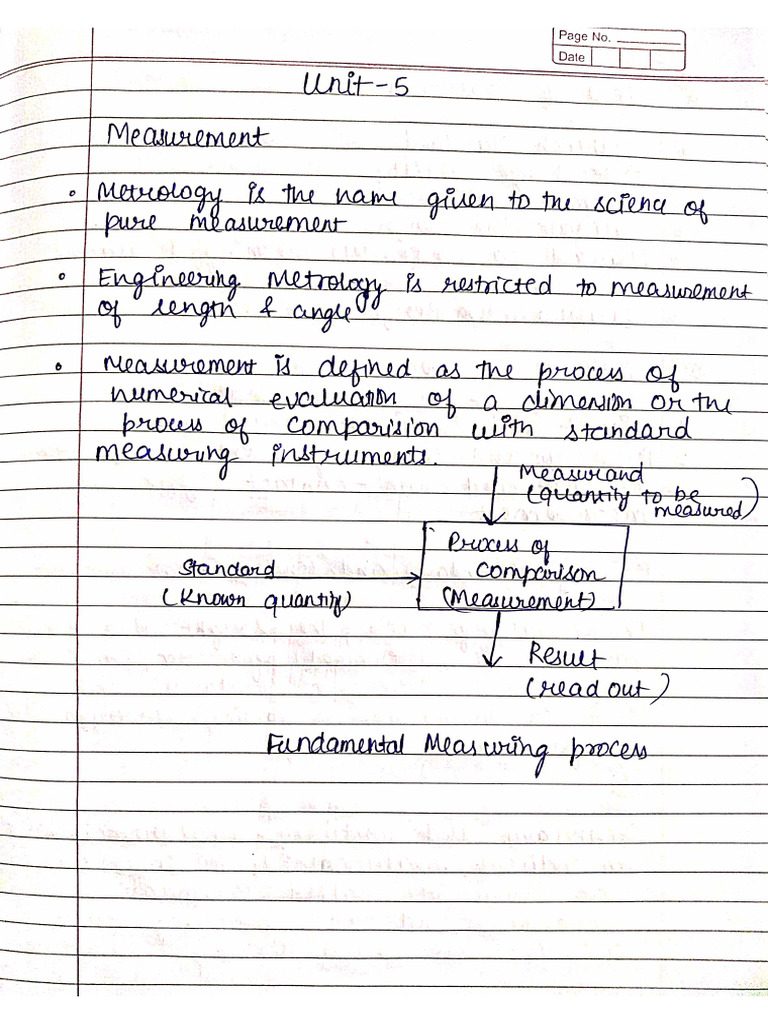 Page No.
Date
Unit-5
Measurement
• Metrology is the name given to the science of
pure measurement
• Engineering Metrology is restricted to measurement
of length & angle
• Measurement is defined as the process of
numerical evaluation of a dimension or the
process of comparision with standard
measuring instruments.
Measurand
(Quantity to be
measured)
Process of
comparison
(Measurement)
Standard
(Known quantity)
Result
(read out)
Fundamental Measuring process